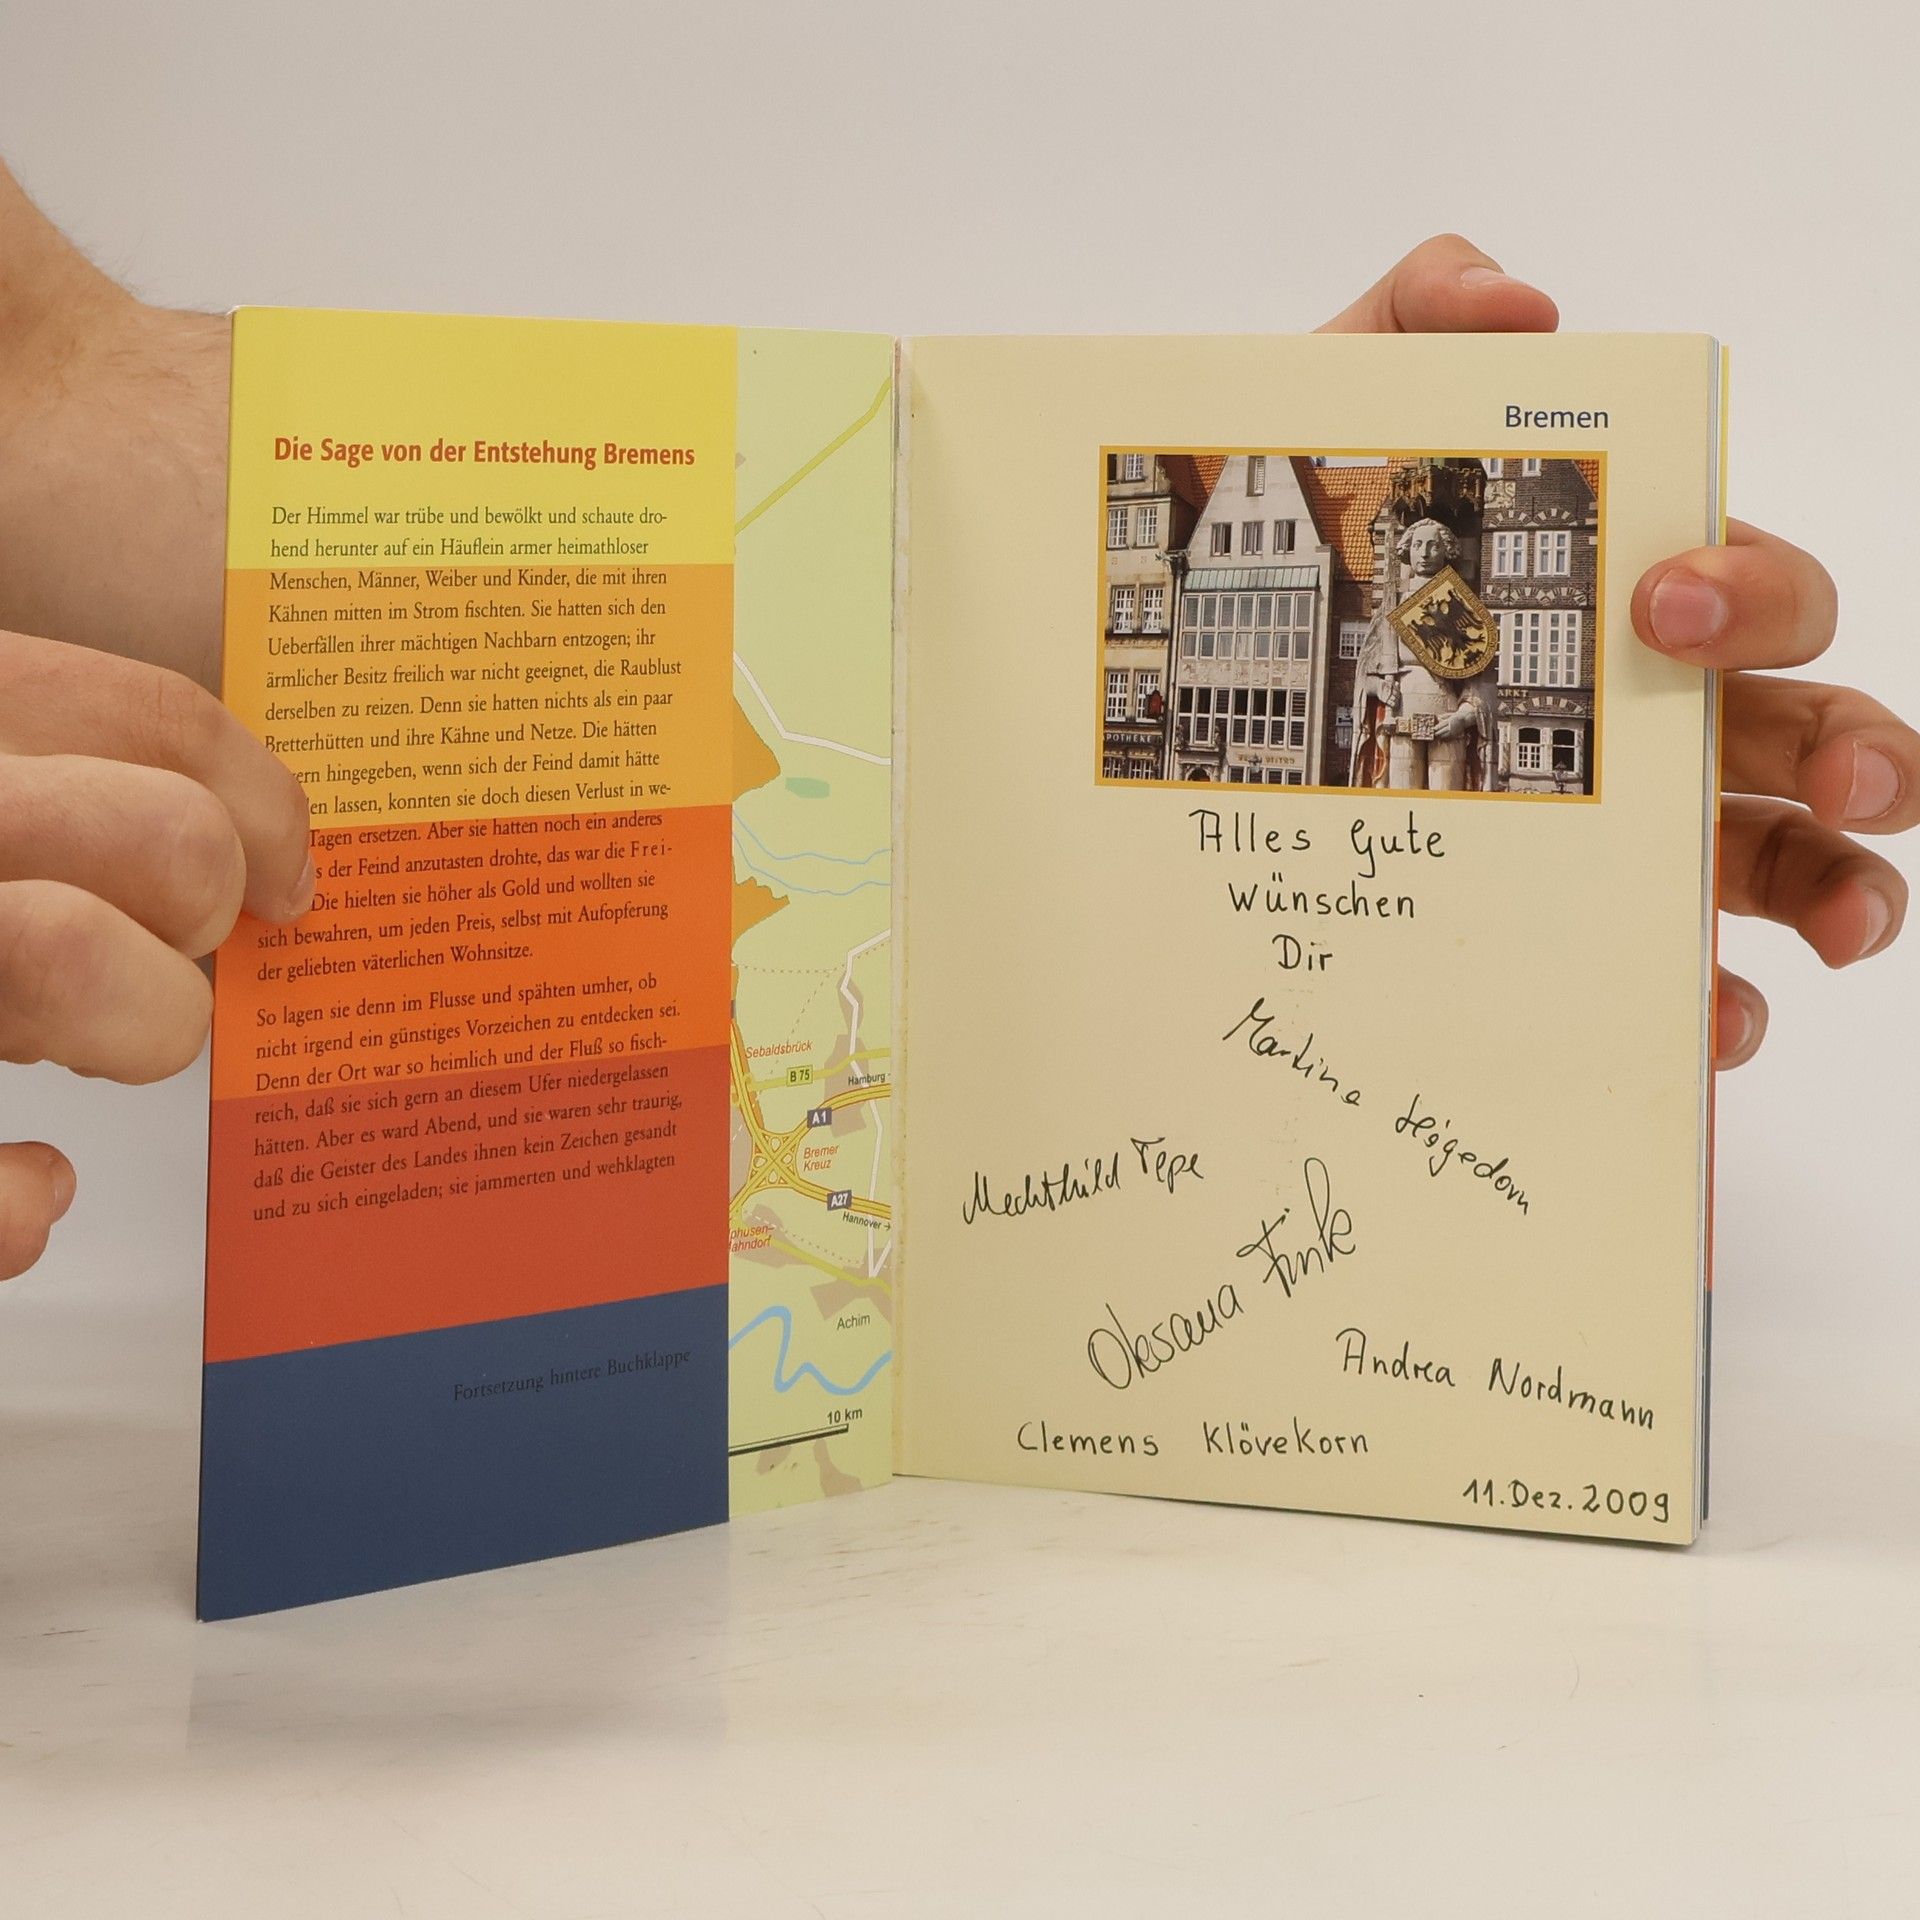 Die Sage von der Entstehung Bremens
Der Himmel war trübe und bewölkt und schaute dro-
hend herunter auf ein Häuflein armer heimathloser
Menschen, Männer, Weiber und Kinder, die mit ihren
Kähnen mitten im Strom fischten. Sie hatten sich den
Ueberfällen ihrer mächtigen Nachbarn entzogen; ihr
ärmlicher Besitz freilich war nicht geeignet, die Raublust
derselben zu reizen. Denn sie hatten nichts als ein paar
Bretterhütten und ihre Kähne und Netze. Die hätten
ern hingegeben, wenn sich der Feind damit hätte
en lassen, konnten sie doch diesen Verlust in we-
Tagen ersetzen. Aber sie hatten noch ein anderes
s der Feind anzutasten drohte, das war die Frei-
Die hielten sie höher als Gold und wollten sie
sich bewahren, um jeden Preis, selbst mit Aufopferung
der geliebten väterlichen Wohnsitze.
So lagen sie denn im Flusse und spähten umher, ob
nicht irgend ein günstiges Vorzeichen zu entdecken sei.
Denn der Ort war so heimlich und der Fluß so fisch-
reich, daß sie sich gern an diesem Ufer niedergelassen
hätten. Aber es ward Abend, und sie waren sehr traurig,
daß die Geister des Landes ihnen kein Zeichen gesandt
und zu sich eingeladen; sie jammerten und wehklagten
Fortsetzung hintere Buchklappe
Sebaldsbrück
B 75
Hamburg
A 1
Bremer
Kreuz
A27
Hannover →
phusen-
ahndorf
Achim
10 km
Bremen
POTHEKE
ARKT
Alles Gute
wünschen
Dir
Martina Högedorn
Mechthild Tepe
Oksana Fink
Andrea Nordmann
Clemens Klövekorn
11. Dez. 2009